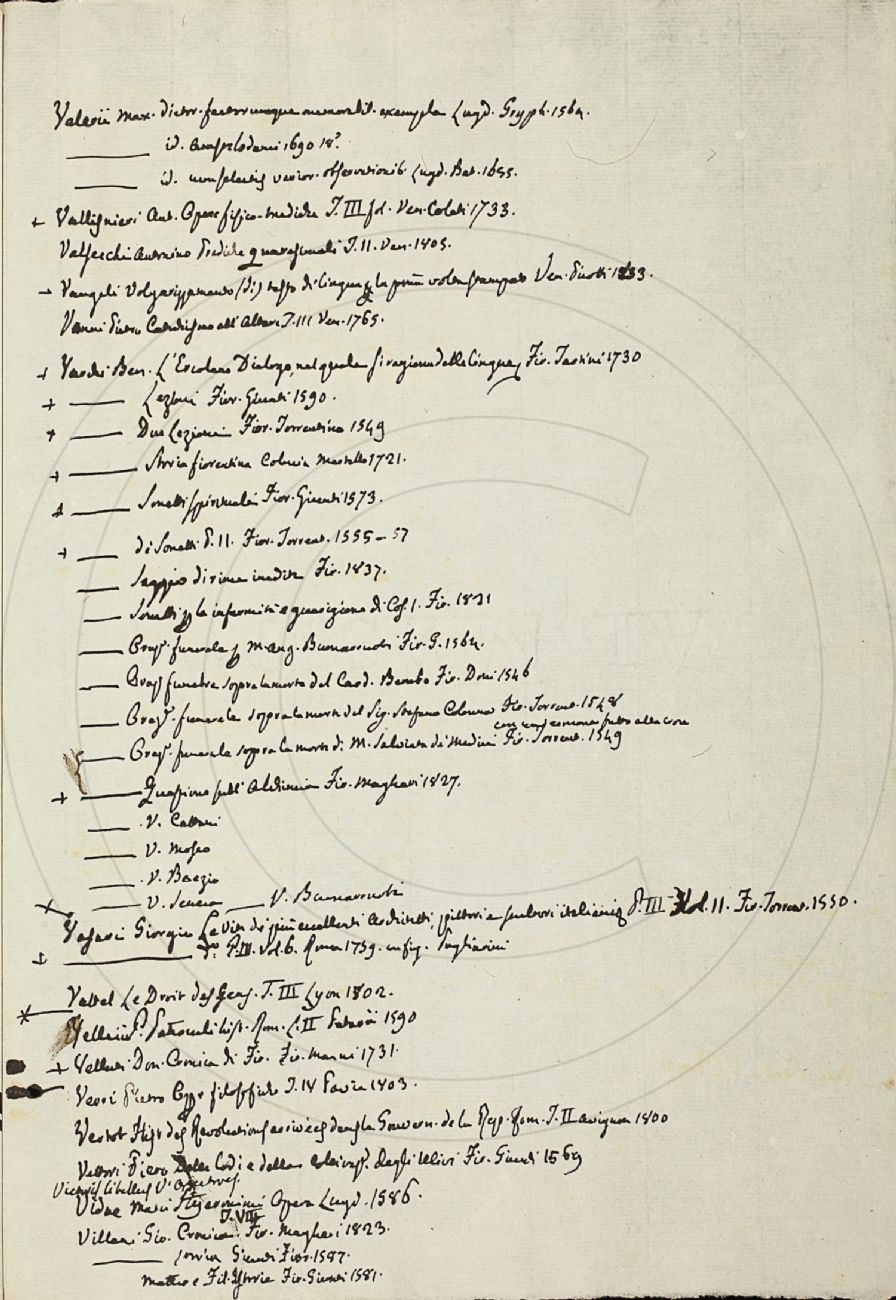 Valerii Max. dictor. factorumque memorabil. exempla Lugd. Gryph. 1564.
____ id. Amstelodami 1690 18°
____ id. cum selectis varior. observationib. Lugd. Bat. 1655.
+ Vallisnieri Ant. Opere fisico-mediche T. III fol. Ven. Coleti 1733.
Valsecchi Antonino Prediche quaresimali T. II. Ven. 1805.
Vangeli Volgarizzamento (di) testo di lingua per la prima volta stampato Ven. 1833.
Vanni Pietro Catechismo all'Altare T. III Ven. 1765.
+ Varchi Ben. L'Ercolano Dialogo, nel quale si ragiona delle lingue, Fir. Tartini 1730
+ ____ Lezioni Fior. Giunti 1590.
+ ____ Due Lezioni Fior. Torrentino 1549
+ ____ Storia fiorentina Colonia Martello 1721.
+ ____ Sonetti spirituali Fior. Giunti 1573.
+ ____ de Sonetti P. II. Fior. Torrent. 1555-57
____ Saggio di rime inedite Fir. 1837.
____ Sonetti per la infermità e guarigione di Cos. I. Fir. 1821
____ Oraz. funerale M. Ang. Buonarroti Fir. G. 1564.
____ Oraz. funebre sopra la morte del Card. Bembo Fir. Doni 1546
____ Oraz. funerale sopra la morte del Sig. Stefano Colonna Fir. Torrent. 1548
con un sermone fatto alla croce
____ Oraz. funerale sopra la morte di M. Salviata de' Medici Fir. Torrent. 1549
+ ____ Questione sull'Alchimia Fir. Magheri 1827.
____ V. Cattani
____ V. Mosco
____ V. Boezio
____ V. Seneca ____ V. Buonarroti
Vasari Giorgio Le Vite de' più eccellenti Architetti, pittori e scultori italiani P. III Vol. II. Fir. Torrent. 1550.
+ ____ P. III. Vol. 6. Roma 1759. con fig. Pagliarini
Vattel Le Droit des Gens. T. III Lyon 1802.
Velleii P. Paterculi hist. Rom. L. II Patavii 1590
+ Velluti Don. Cronica di Fir. Fir. Manni 1731.
Verri Pietro Opp. filosofiche T. IV Pavia 1803.
Vertot Hist. des Revolutions arrivées dans le Gouvern. de la Rep. Rom. T. II Avignon 1800
Vettori Piero Delle lodi e della coltivaz. degli Ulivi Fir. Giunti 1569
Victoris libellus V. Oratores
Vidae Marci Hieronimi Opera Lugd. 1586.
Villani Gio. Cronica T. VIII Fir. Magheri 1823.
____ Storia Giunti Fior. 1587.
Matteo e Fil. Istoria Fir. Giunti 1581.